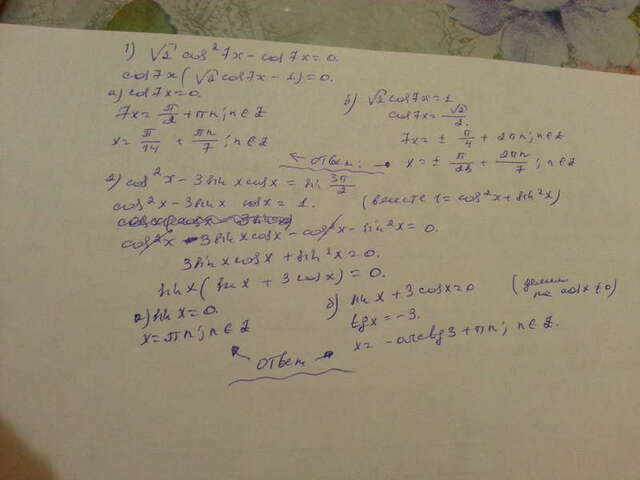 1) √2 cos²7x - cos7x = 0.
cos7x(√2 cos7x - 1) = 0.
а) cos7x = 0.
7x = π/2 + πn; n∈Z
x = π/14 + πn/7; n∈Z
б) √2 cos7x = 1
cos7x = √2/2.
7x = ± π/4 + 2πn; n∈Z
x = ± π/28 + 2πn/7; n∈Z
ответ:
2) cos²x - 3sinx cosx = sin 3π/2
cos²x - 3sinx cosx = 1. (вместо 1 = cos²x + sin²x)
cos²x - 3sinx cosx - cos²x - sin²x = 0.
3sinx cosx + sin²x = 0.
sinx(sinx + 3cosx) = 0.
а) sinx = 0.
x = πn; n∈Z
б) sinx + 3cosx = 0 (делим на cosx ≠ 0)
tgx = -3.
x = -arctg3 + πn; n∈Z.
ответ